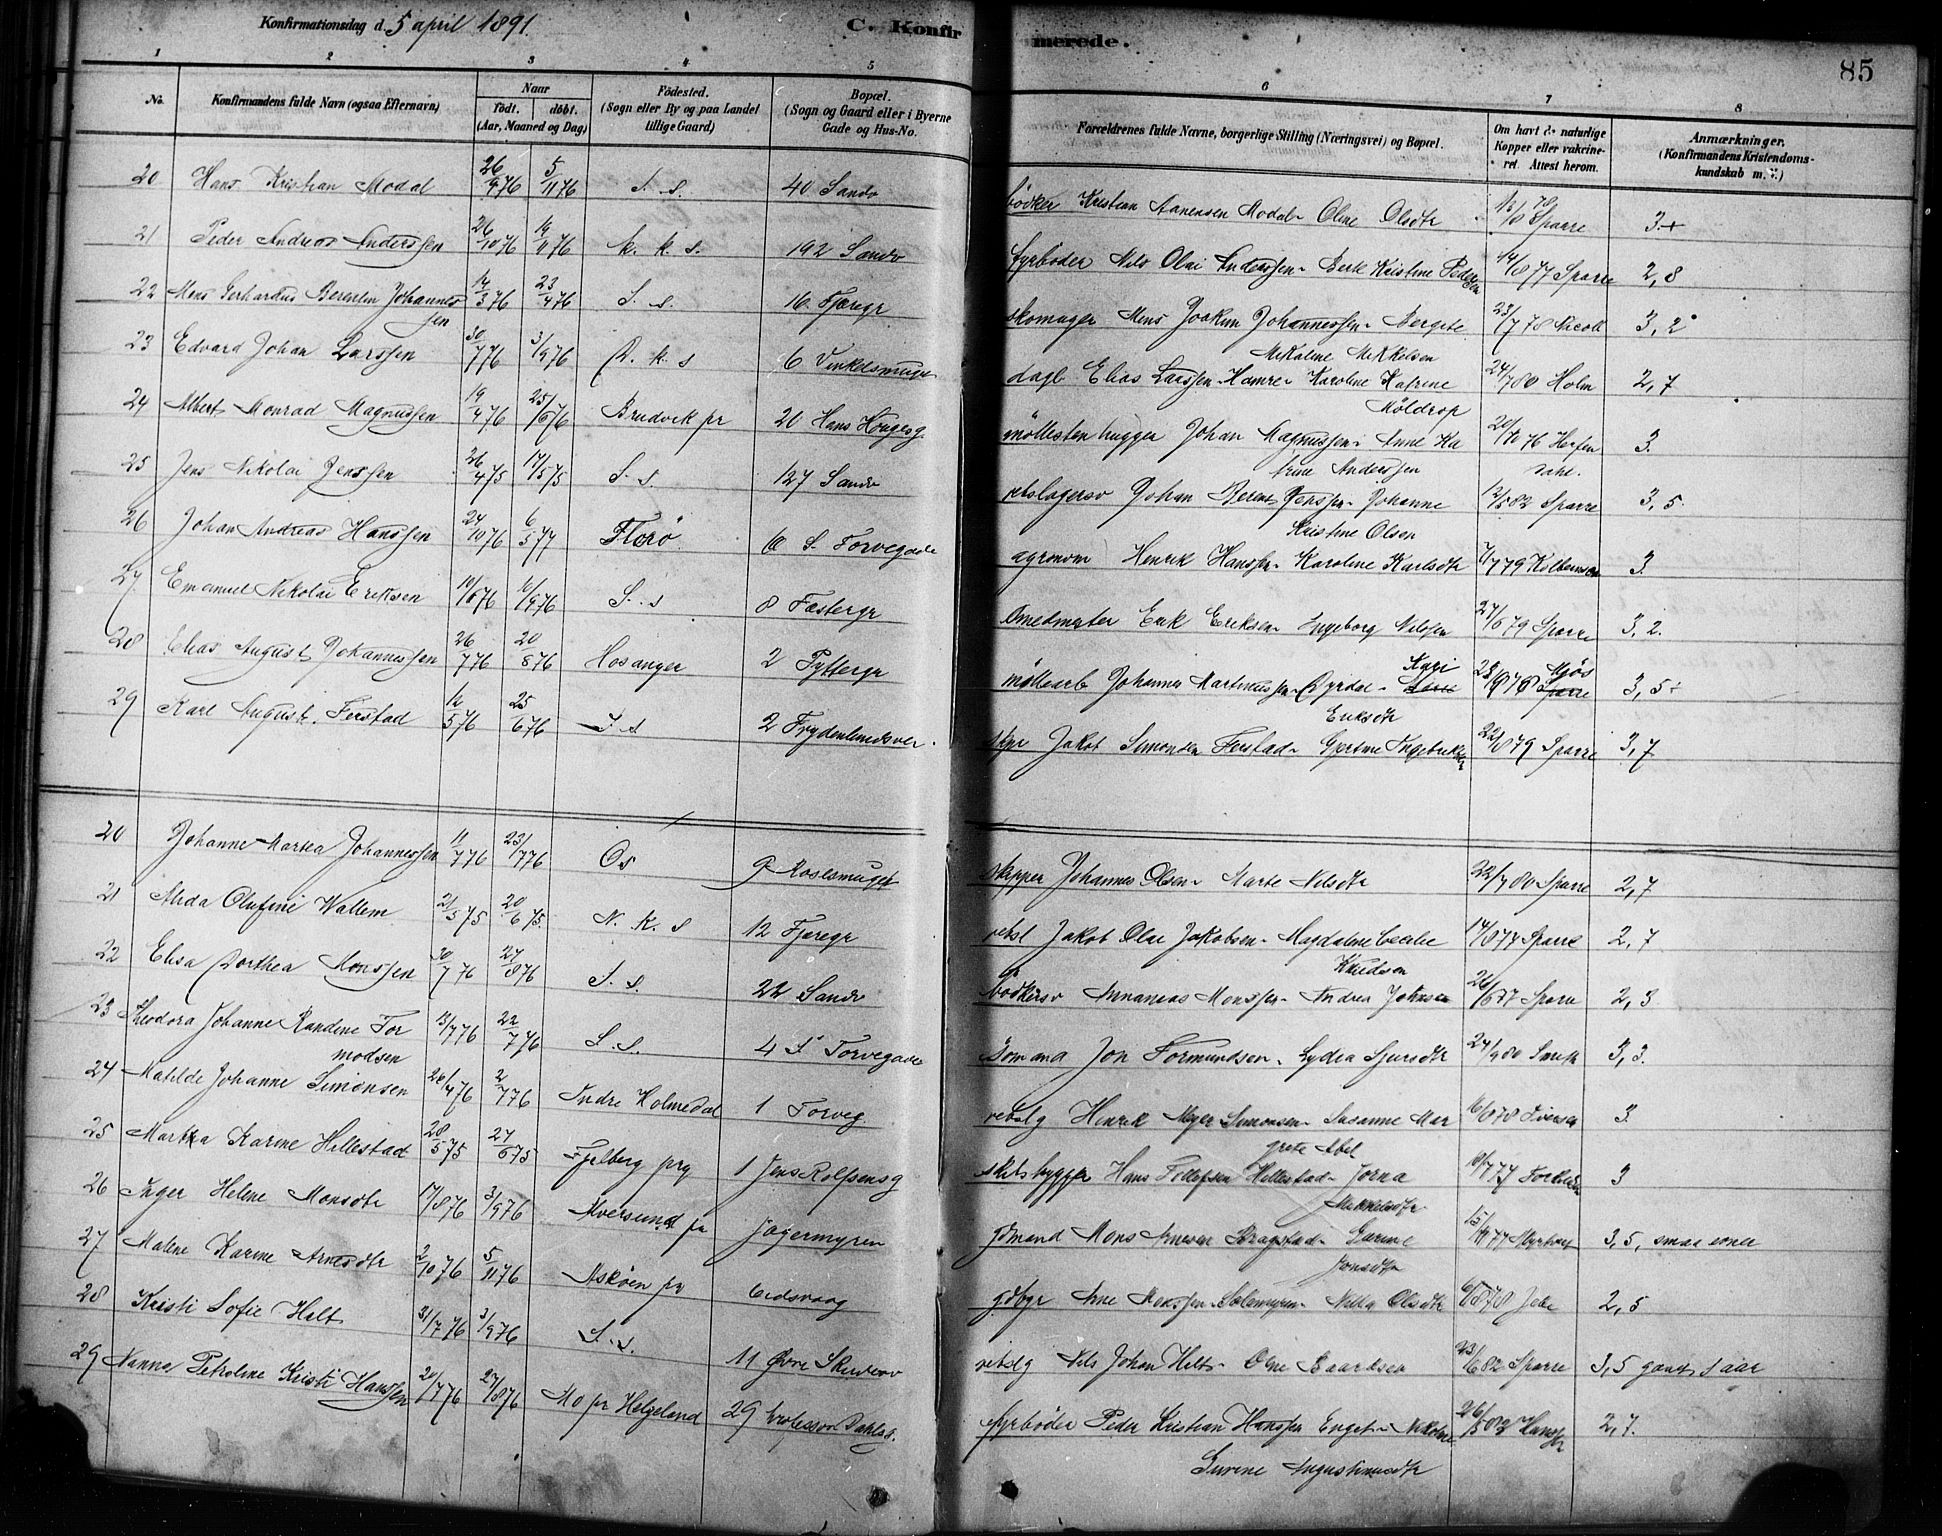 Konfirmationsdag d. 5 april 1891.
C. Konfirmerede.
85
1 2 3 4 5 6 7 8
No. Konfirmandens fulde Navn (ogsaa Efternavn) Naar Födt. döbt. (Aar, Maaned og Dag) Födested. (Sogn eller By og paa Landet tillige Gaard) Bopæl. (Sogn og Gaard eller i Byerne Gade og Hus-No. Forældrenes fulde Navne, borgerlige Stilling (Næringsvei) og Bopæl. Om havt de naturlige Kopper eller vakcineret. Attest herom. Anmærkninger. (Konfirmandens Kristendomskundskab m. V.)
20 Hans Kristian Modal 26/9 76 5/11 76 S. s. 40 Sandv bödker Kristian Aanensen Modal - Oline Olsdtr Sparre 3.+
21 Peder Andreas Anderssen 26/10 76 19/11 76 k. k. s. 192 Sandv fyrböder Nils Olai Anderssen - Berte Kristine Pedersen 14/8 77 Sparre 2,8
22 Mons Gerhardus Berentin Johannessen 14/3 76 23/4 76 S. s. 16 Fjæregr skomager Mons Joakim Johannessen - Bergete Mikaline Mikkelsen 23/7 78 3,2
23 Edvard Johan Larssen 30/7 76 3/9 76 D. k. s 6 Vinkelsmuget dagl. Elias Larssen Hamre - Karoline Katrine Möldrop 24/7 80 Holm 2,7
24 Albert Monrad Magnussen 19/4 76 25/6 76 Brudvik pr 20 Hans Haugesg. möllestenhugger Johan Magnussen - Anne Katrine Anderssen 3.
25 Jens Nikolai Jenssen 26/4 75 17/5 75 S. s 127 Sandv rebslagersv Johan Berent Jenssen - Johanne Kristine Olsen 12/5 82 Sparre 3,5.
26 Johan Andreas Hanssen 24/10 76 6/5 77 Florö 6 S. Torvegade agronom Henrik Hanssen - Karoline Karlsdtr 3.
27. Emanuel Nikolai Eriksen 10/6 76 10/9 76 S. s 8 Fæstergr smedmester Erik Eriksen - Ingeborg Nilssen 27/6 79 Sparre 3,2.
28 Elias August Johannessen 26/7 76 20/8 76 Hosanger 2 Pyttergr möllearb Johannes Martinussen Dyrdal - Kari Eriksdtr Mjös 3,5+
29 Karl August Ferstad 16/5 76 25/6 76 S s 2 Frydenlundsvei. Jakob Simonsen Ferstad - Gjertine Ingebriktsdtr 22/8 79 Sparre 3,7
20 Johanne Martea Johannessen 11/7 76 23/7 76 Os 9 Rosesmuget skipper Johannes Olsen - Marte Nilsdtr 22/7 80 Sparre 2,7
21 Alida Olufine Wallem 21/5 75 20/6 75 N. k. s 12 Fjæregr rebsl Jakob Olai Jakobsen - Magdalene Cecilie Knudsen 14/8 77 Sparre 2,7
22 Elisa Dorthea Monssen 30/7 76 27/8 76 S. s. 22 Sandv bödkersv Annanias Monssen - Andrea Johnsen 26/6 77 Sparre 2,3
23 Theodora Johanne Randine Tormodsen 13/7 76 22/7 76 S. s. 4 S Torvegade sömand Jon Tormundsen - Lydia Sjursdtr 24/9 80 3,3.
24 Matilde Johanne Simonsen 26/4 76 2/7 76 Indre Holmedal 1 Torveg. rebslg Henrik Meyer Simonsen - Susanne Margrete Abel 6/8 78 Iversen 3.
25 Martha Karine Hillestad 28/5 75 27/6 75 Fjelberg prg 1 Jens Rolfsensg skibsbygger Hans Tollefsen Hillestad - Jorna Mikkelsdtr 3
26 Inger Helene Monsdtr 17/8 76 3/9 76 Alversund pr Jægermyren gdmand Mons Arnesen Bragstad - Gurine Jonsdtr 3,5, smaa evner
27 Malene Karine Arnesdtr 2/10 76 5/11 76 Asköen pr Eidsvaag gdbgr Arne Monssen Solemyren - Nilla Olsdtr 2,5
28 Kristi Sofie Helt 31/7 76 3/9 76 S. s. 11 Övre Skivebv rebslg Nils Johan Helt - Oline Baardsen 23/6 82 Sparre 3,5 gaaet 1 aar
29 Nanna Petroline Kristi Hanssen 20/7 76 27/8 76 Mo pr Helgeland 29 Professor Dahlsg. fyrböder Peder Kristian Hanssen Enget - Nikoline Gurine Augustinusdtr 2,7.